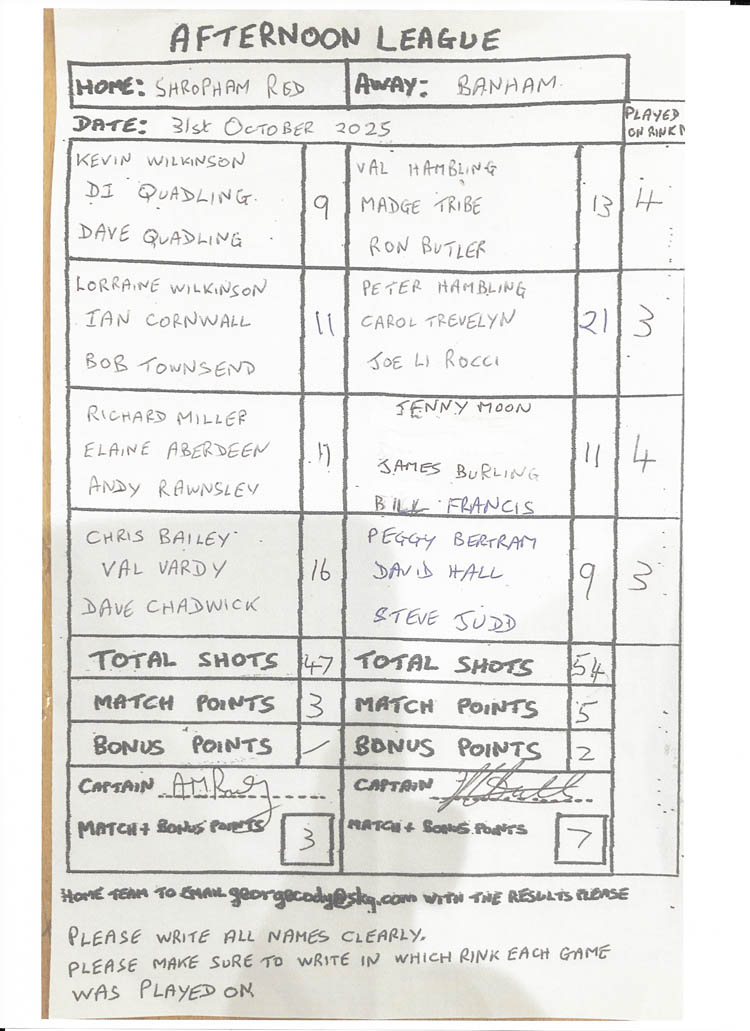 AFTERNOON LEAGUE
HOME: SHROPHAM RED
AWAY: BANHAM.
DATE: 31st OCTOBER 2025
PLAYED
ON RINK
KEVIN WILKINSON
DI QUADLING.
DAVE QUADLING
9
VAL HAMBLING
MADGE TRIBE
RON BUTLER
13
4
LORRAINE WILKINSON
IAN CORNWALL
BOB TOWNSEND
11
PETER HAMBLING
CAROL TREVELYN
JOE LI ROCCI
21
3
RICHARD MILLER
ELAINE ABERDEEN
ANDY RAWNSLEY
11
JENNY MOON
JAMES BURLING
BILL FRANCIS
11
4
CHRIS BAILEY
VAL VARDY
DAVE CHADWICK
16
PEGGY BERTRAM
DAVID HALL
STEVE JUDD
9
3
TOTAL SHOTS 47
TOTAL SHOTS 54
MATCH POINTS 3
MATCH POINTS 5
BONUS POINTS /
BONUS POINTS 2
CAPTAIN
CAPTAIN
MATCH + BONUS POINTS 3
MATCH + BONUS POINTS 7
HOME TEAM TO EMAIL georgecody@sky.com WITH THE RESULTS PLEASE
PLEASE WRITE ALL NAMES CLEARLY.
PLEASE MAKE SURE TO WRITE IN WHICH RINK EACH GAME
WAS PLAYED ON